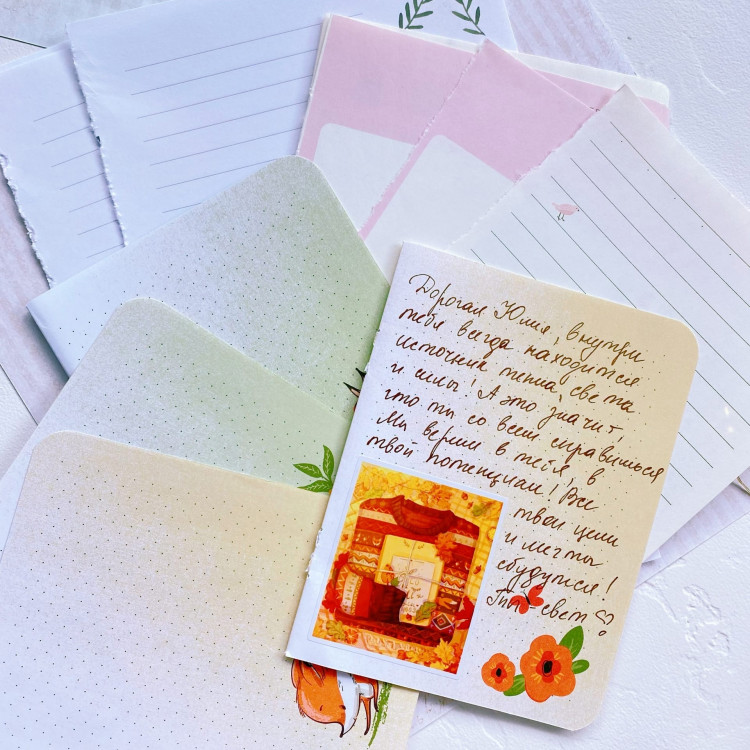 Дорогая Юлия, внутри
тебя всегда находится
источник тепла, света
и силы! А это значит,
что ты со всем справишься
Мы верим в тебя, в
твой потенциал! Все
твои цели
и мечты
сбудутся!
Ты - свет ♡